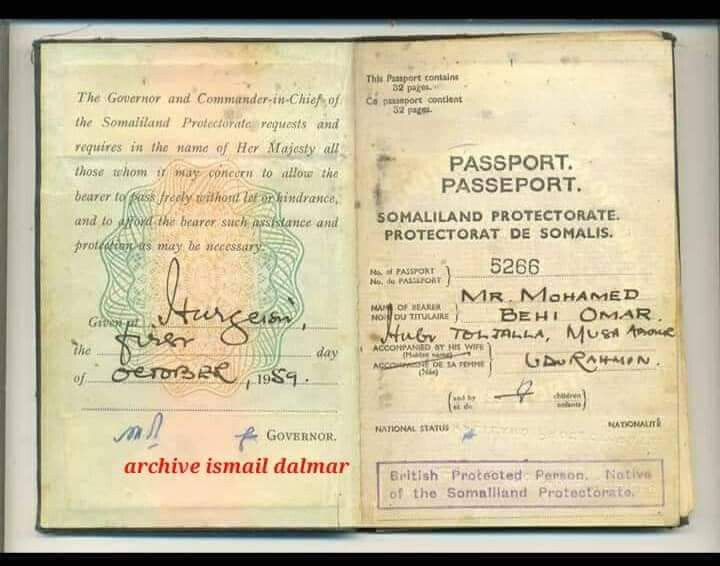 The Governor and Commander-in-Chief of
the Somaliland Protectorate requests and
requires in the name of Her Majesty all
those whom it may concern to allow the
bearer to pass freely without let or hindrance,
and to afford the bearer such assistance and
protection as may be necessary.
Given at Hargeisa,
the first day
of OCTOBER, 1959.
GOVERNOR.
archive ismail dalmar
This Passport contains
32 pages.
Ce passeport contient
32 pages.
PASSPORT.
PASSEPORT.
SOMALILAND PROTECTORATE.
PROTECTORAT DE SOMALIS.
No. of PASSPORT
No. du PASSEPORT
5266
NAME OF BEARER
NOM DU TITULAIRE
MR. MOHAMED
BEHI OMAR.
TOLJALLA, MUSA
ACCOMPANIED BY HIS WIFE
(Maiden name)
ACCOMPAGNÉ DE SA FEMME
(Née)
and by children
et de enfants
NATIONAL STATUS NATIONALITÉ
British Protected Person, Native
of the Somaliland Protectorate.